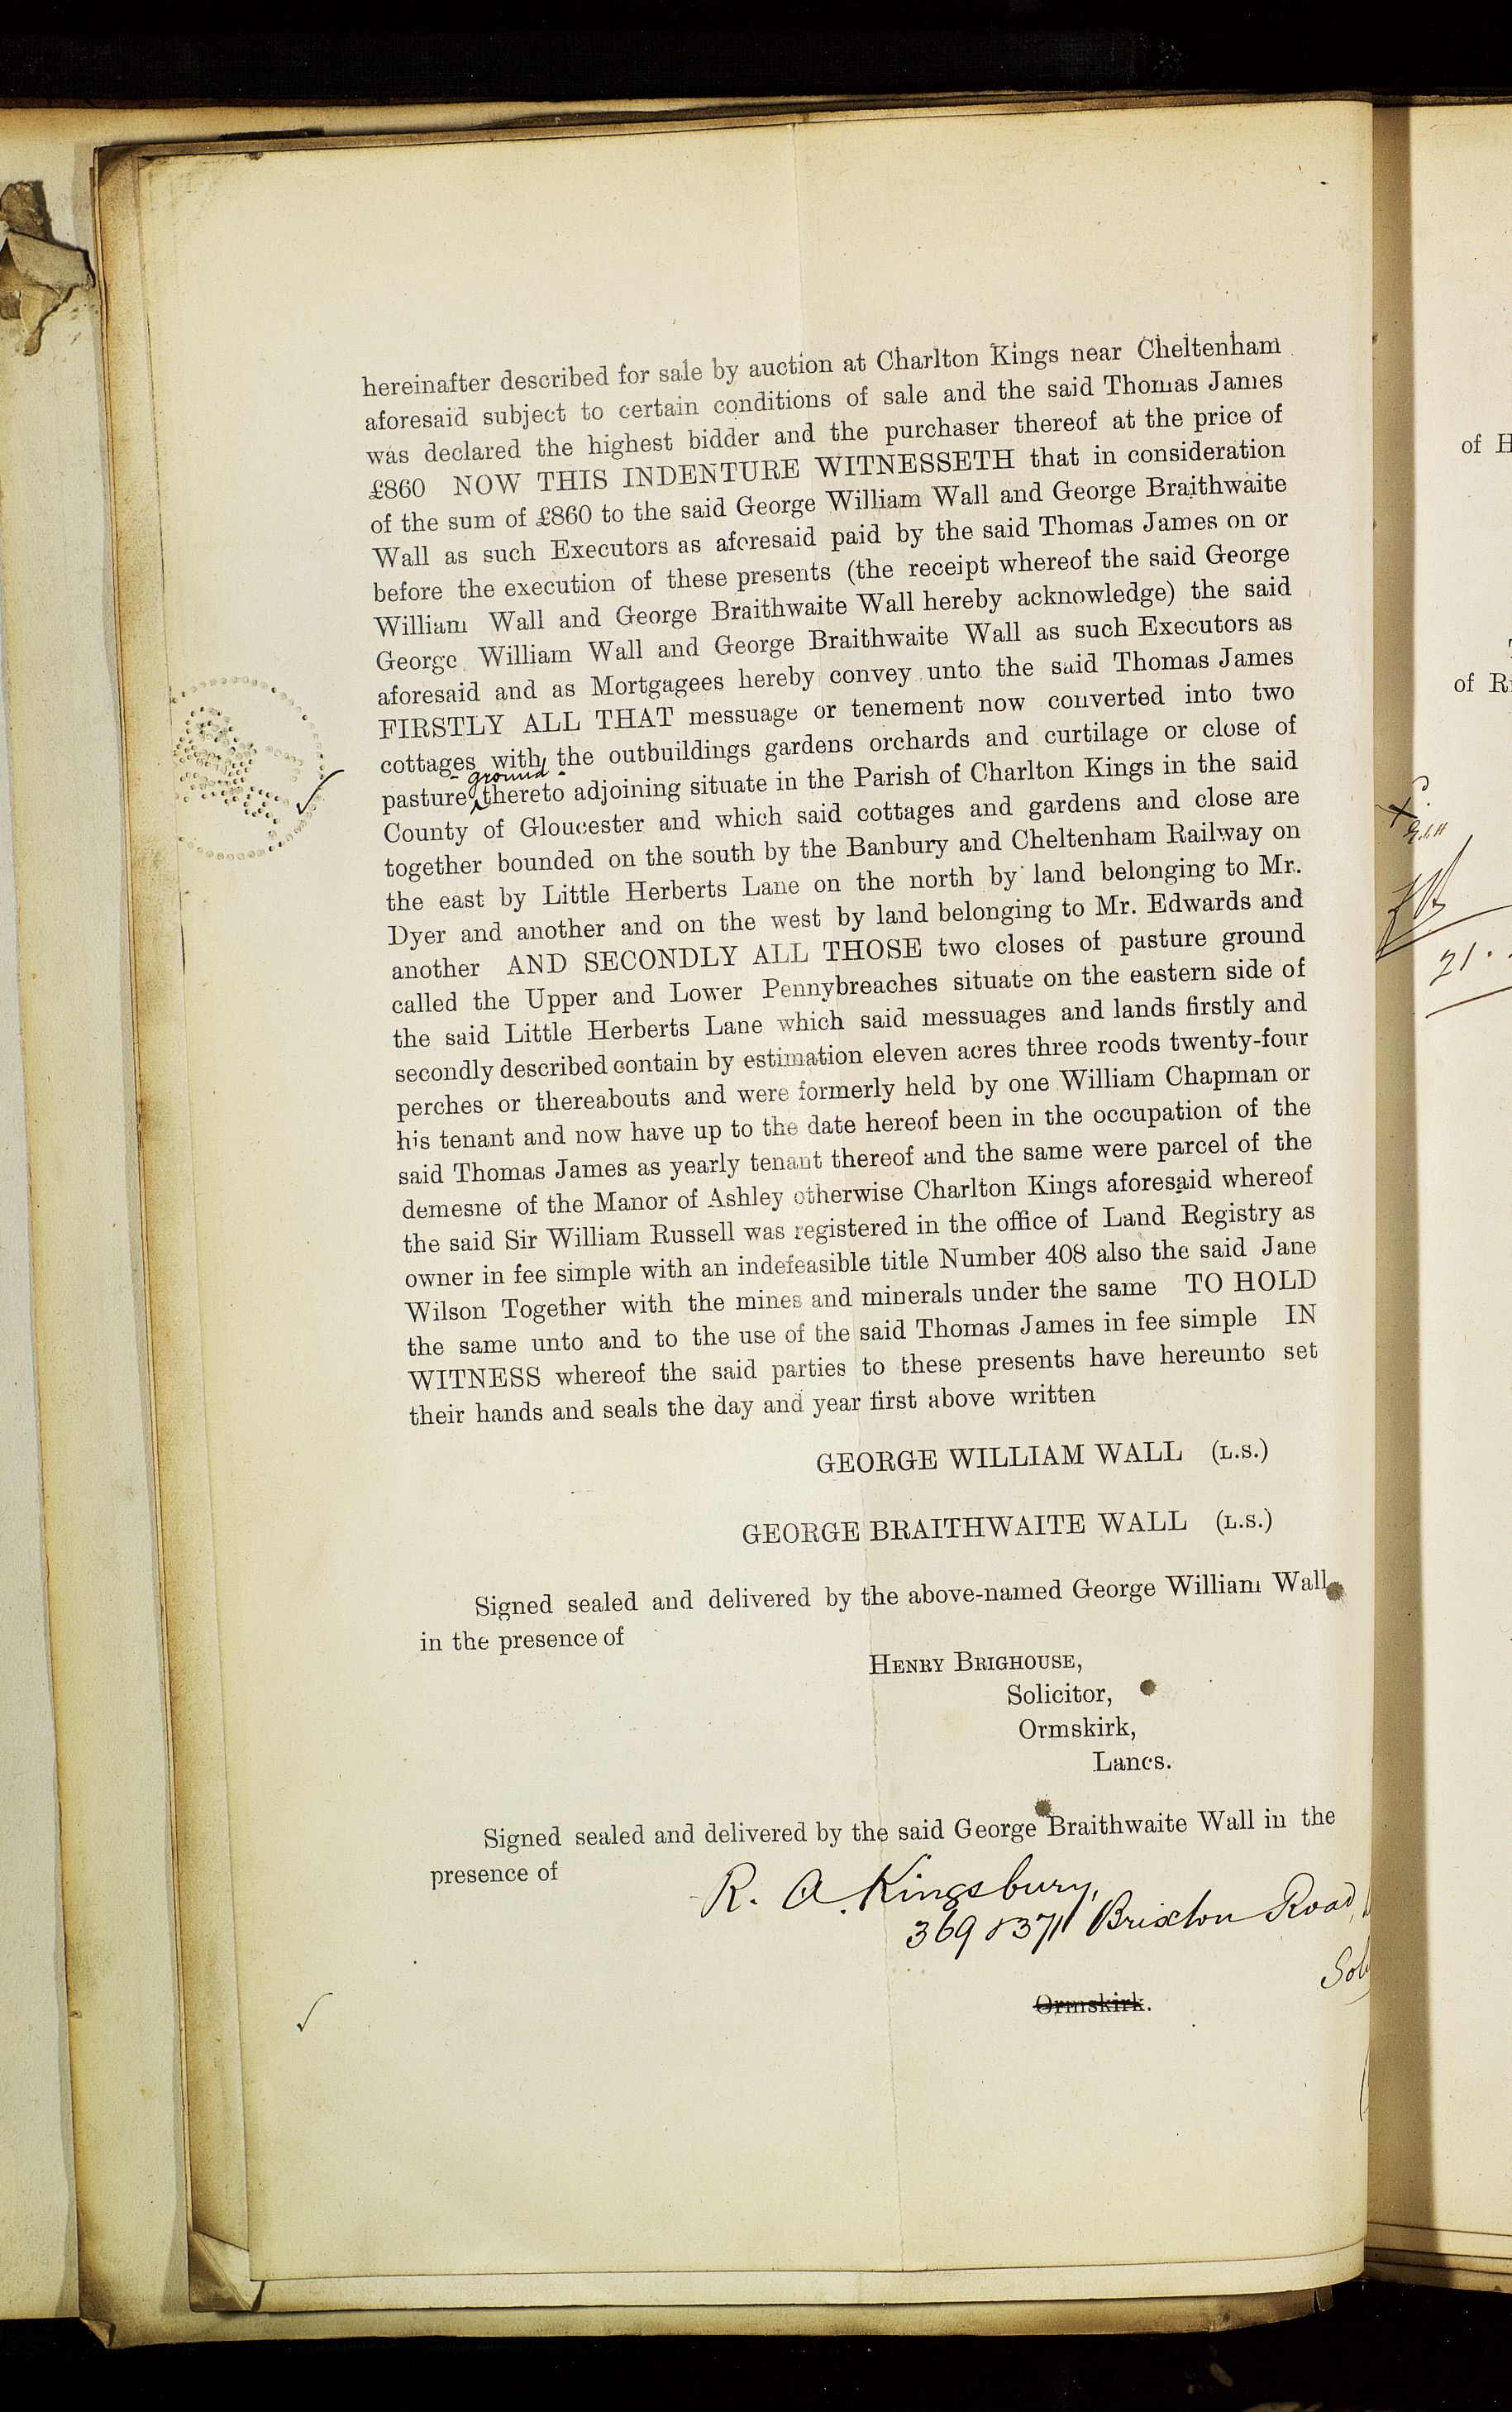 hereinafter described for sale by auction at Charlton Kings near Cheltenham
aforesaid subject to certain conditions of sale and the said Thomas James
was declared the highest bidder and the purchaser thereof at the price of
£860 NOW THIS INDENTURE WITNESSETH that in consideration
of the sum of £860 to the said George William Wall and George Braithwaite
Wall as such Executors as aforesaid paid by the said Thomas James on or
before the execution of these presents (the receipt whereof the said George
William Wall and George Braithwaite Wall hereby acknowledge) the said
George William Wall and George Braithwaite Wall as such Executors as
aforesaid and as Mortgagees hereby convey unto the said Thomas James
FIRSTLY ALL THAT messuage or tenement now converted into two
cottages with the outbuildings gardens orchards and curtilage or close of
ground
pasture thereto adjoining situate in the Parish of Charlton Kings in the said
County of Gloucester and which said cottages and gardens and close are
together bounded on the south by the Banbury and Cheltenham Railway on
the east by Little Herberts Lane on the north by land belonging to Mr.
Dyer and another and on the west by land belonging to Mr. Edwards and
another AND SECONDLY ALL THOSE two closes of pasture ground
called the Upper and Lower Pennybreaches situate on the eastern side of
the said Little Herberts Lane which said messuages and lands firstly and
secondly described contain by estimation eleven acres three roods twenty-four
perches or thereabouts and were formerly held by one William Chapman or
his tenant and now have up to the date hereof been in the occupation of the
said Thomas James as yearly tenant thereof and the same were parcel of the
demesne of the Manor of Ashley otherwise Charlton Kings aforesaid whereof
the said Sir William Russell was registered in the office of Land Registry as
owner in fee simple with an indefeasible title Number 408 also the said Jane
Wilson Together with the mines and minerals under the same TO HOLD
the same unto and to the use of the said Thomas James in fee simple IN
WITNESS whereof the said parties to these presents have hereunto set
their hands and seals the day and year first above written
GEORGE WILLIAM WALL (L.S.)
GEORGE BRAITHWAITE WALL (L.S.)
Signed sealed and delivered by the above-named George William Wall
in the presence of
HENRY BRIGHOUSE,
Solicitor,
Ormskirk,
Lancs.
Signed sealed and delivered by the said George Braithwaite Wall in the
presence of
R. A. Kingsbury,
369 & 371 Brixton Road,
Ormskirk.
of H
of R
21.